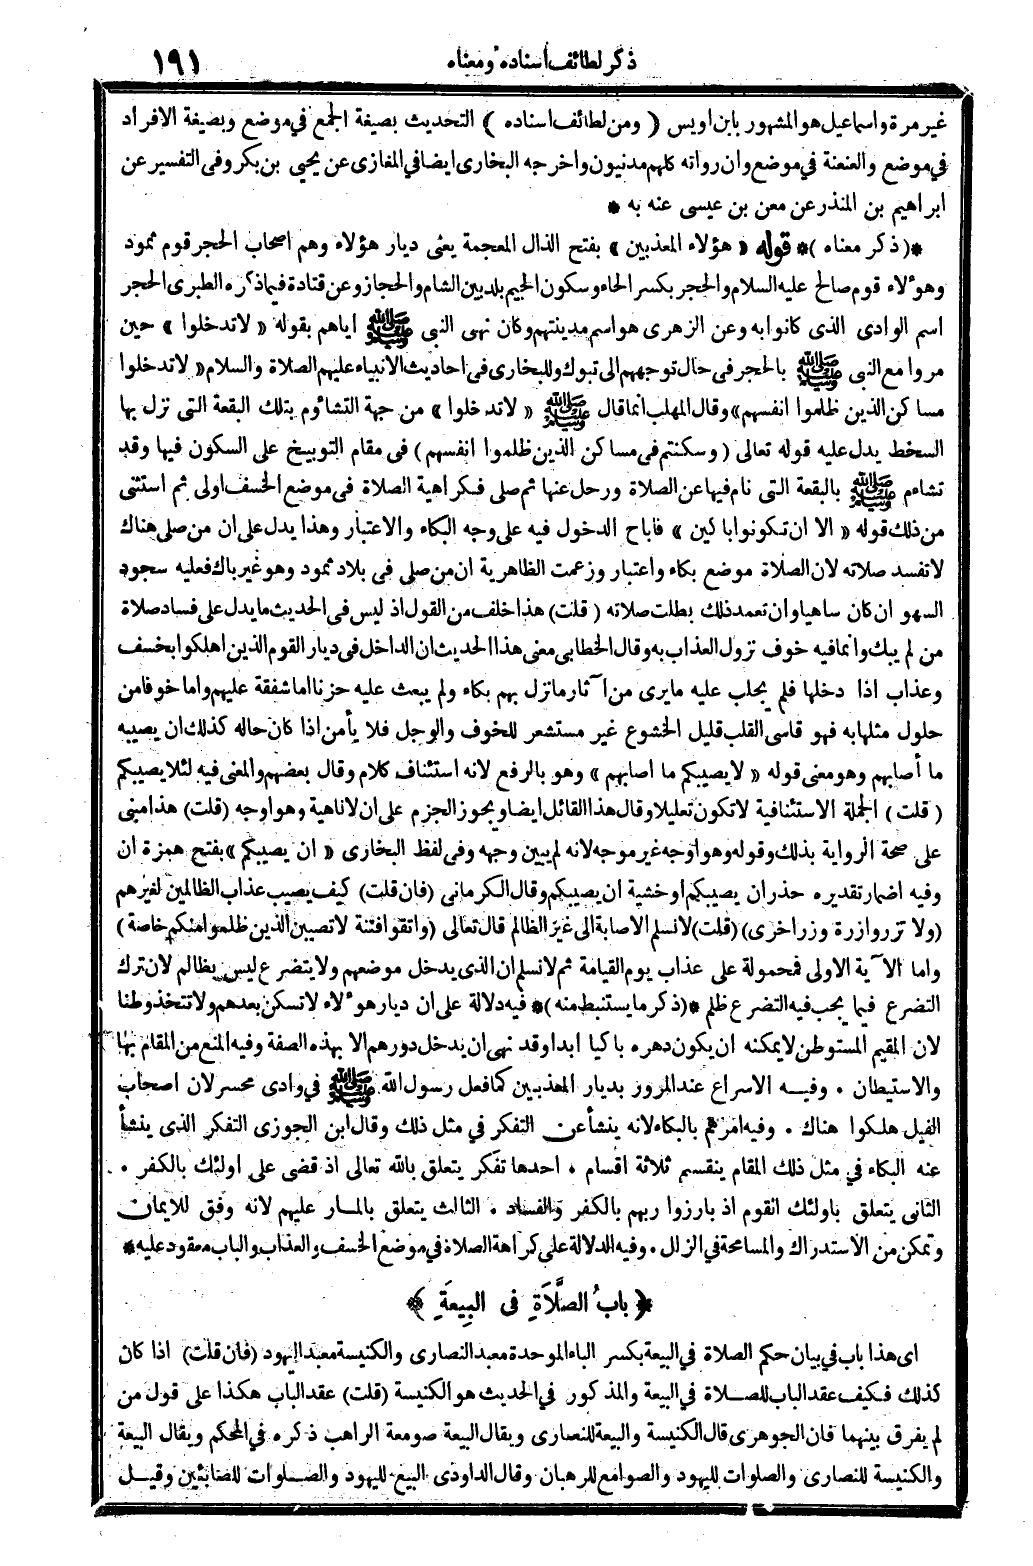 ذكر لطائف اسناده ومعناه ١٩١
غير مرة واسماعيل هو المشهور بابن اويس ( ومن لطائف اسناده ) التحديث بصيغة الجمع في موضع وبصيغة الافراد
في موضع والعنعنة في موضع وان رواته كلهم مدنيون واخرجه البخارى ايضا في المغازى عن يحيى بن بكر وفى التفسير عن
ابراهيم بن المنذر عن معن بن عيسى عنه به *
*( ذكر معناه )* قوله « هؤلاء المعذبين » بفتح الذال المعجمة يعنى ديار هؤلاء وهم اصحاب الحجر قوم ثمود
وهؤلاء قوم صالح عليه السلام والحجر بكسر الحاء وسكون الجيم بلد بين الشام والحجاز وعن قتادة فيما ذكره الطبرى الحجر
اسم الوادى الذى كانوا به وعن الزهرى هو اسم مدينتهم وكان نهى النبى ﷺ اياهم بقوله « لا تدخلوا » حين
مروا مع النبى ﷺ بالحجر فى حال توجههم الى تبوك وللبخارى فى احاديث الانبياء عليهم الصلاة والسلام « لا تدخلوا
مساكن الذين ظلموا انفسهم » وقال المهلب انما قال ﷺ « لا تدخلوا » من جهة التشاؤم بتلك البقعة التى نزل بها
السخط يدل عليه قوله تعالى ( وسكنتم فى مساكن الذين ظلموا انفسهم ) فى مقام التوبيخ على السكون فيها وقد
تشاءم ﷺ بالبقعة التى نام فيها عن الصلاة ورحل عنها ثم صلى فكراهية الصلاة فى موضع الخسف اولى ثم استثنى
من ذلك قوله « الا ان تكونوا باكين » فاباح الدخول فيه على وجه البكاء والاعتبار وهذا يدل على ان من صلى هناك
لا تفسد صلاته لان الصلاة موضع بكاء واعتبار وزعمت الظاهرية ان من صلى فى بلاد ثمود وهو غير باك فعليه سجود
السهو ان كان ساهيا وان تعمد ذلك بطلت صلاته ( قلت ) هذا خلف من القول اذ ليس فى الحديث ما يدل على فساد صلاة
من لم يبك وانما فيه خوف نزول العذاب به وقال الخطابى معنى هذا الحديث ان الداخل فى ديار القوم الذين اهلكوا بخسف
وعذاب اذا دخلها فلم يجلب عليه ما يرى من آثار ما نزل بهم بكاء ولم يبعث عليه حزنا اما شفقة عليهم واما خوفا من
حلول مثلها به فهو قاسى القلب قليل الخشوع غير مستشعر للخوف والوجل فلا يأمن اذا كان حاله كذلك ان يصيبه
ما أصابهم وهو معنى قوله « لا يصيبكم ما اصابهم » وهو بالرفع لانه استئناف كلام وقال بعضهم والمعنى فيه لئلا يصيبكم
( قلت ) الجملة الاستئنافية لا تكون تعليلا وقال هذا القائل ايضا ويجوز الجزم على ان لا ناهية وهو اوجه ( قلت ) هذا مبنى
على صحة الرواية بذلك وقوله وهو اوجه غير موجه لانه لم يبين وجهه وفى لفظ البخارى « ان يصيبكم » بفتح همزة ان
وفيه اضمار تقديره حذر ان يصيبكم او خشية ان يصيبكم وقال الكرمانى ( فان قلت ) كيف يصيب عذاب الظالمين لغيرهم
( ولا تزر وازرة وزر اخرى ) ( قلت ) لا نسلم الاصابة الى غير الظالم قال تعالى ( واتقوا فتنة لا تصيبن الذين ظلموا منكم خاصة )
واما الآية الاولى فمحمولة على عذاب يوم القيامة ثم لا نسلم ان الذى يدخل موضعهم ولا يتضرع ليس بظالم لان ترك
التضرع فيما يجب فيه التضرع ظلم *( ذكر ما يستنبط منه )* فيه دلالة على ان ديار هؤلاء لا تسكن بعدهم ولا تتخذ وطنا
لان المقيم المستوطن لا يمكنه ان يكون دهره باكيا ابدا وقد نهى ان يدخل دورهم الا بهذه الصفة وفيه المنع من المقام بها
والاستيطان . وفيـه الاسراع عند المرور بديار المعذبين كما فعل رسول الله ﷺ في وادى محسر لان اصحاب
الفيل هلكوا هناك . وفيه امرهم بالبكاء لانه ينشأ عن التفكر في مثل ذلك وقال ابن الجوزى التفكر الذى ينشأ
عنه البكاء في مثل ذلك المقام ينقسم ثلاثة اقسام . احدها تفكر يتعلق بالله تعالى اذ قضى على اولئك بالكفر .
الثانى يتعلق باولئك القوم اذ بارزوا ربهم بالكفر والفساد . الثالث يتعلق بالمار عليهم لانه وفق للايمان
وتمكن من الاستدراك والمسامحة في الزلل . وفيه الدلالة على كراهة الصلاة في موضع الخسف والعذاب والباب معقود عليه *
﴿ بابُ الصَّلَاةِ فى البِيعَةِ ﴾
اى هذا باب في بيان حكم الصلاة في البيعة بكسر الباء الموحدة معبد النصارى والكنيسة معبد اليهود ( فان قلت ) اذا كان
كذلك فكيف عقد الباب للصلاة في البيعة والمذكور في الحديث هو الكنيسة ( قلت ) عقد الباب هكذا على قول من
لم يفرق بينهما فان الجوهرى قال الكنيسة والبيعة للنصارى ويقال البيعة صومعة الراهب ذكره في المحكم ويقال البيعة
والكنيسة للنصارى والصلوات لليهود والصوامع للرهبان وقال الداودى البيع لليهود والصلوات للصابئين وقيـل